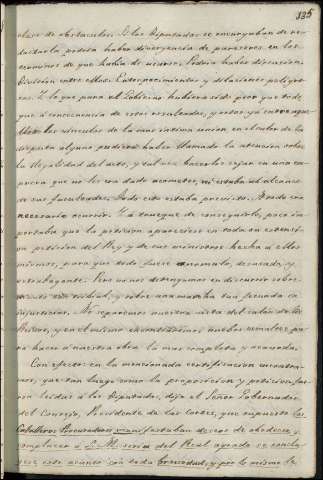 135
clase de obstaculos. Si los Diputados se encargaban de re-
dactarla podria haber divergencia de pareceres en los
terminos de que habia de usarse. Podria haber discusion.
Division entre ellos. Entorpecimientos y dilaciones peligro-
sas. Y lo que para el Gobierno hubiera sido peor que todo
que á consecuencia de estos resultados, y rotos ya entre aque-
llos los vinculos de la mas intima union en el calor de la
disputa alguno pudiera haber llamado la atencion sobre
la ilegalidad del acto, y tal vez hacerlos cejar en una em-
presa que no les era dado acometer, ni estaba al alcance
de sus facultades. Todo esto estaba previsto. A todo era
necesario ocurrir. Y á trueque de conseguirlo, poco im-
portaba que la peticion apareciese en toda su estension
peticion del Rey y de sus ministros hecha á ellos
mismos, para que todo fuese anomalo, descarado, y
estravagante. Pero no nos detengamos en discurrir sobre
y sobre una materia tan fecunda en
No separemos nuestra vista del salon de los
Reinos, y en el mismo encontraremos nuebos esmaltes pa-
ra hacer á nuestra obra la mas completa y acavada.
Con efecto: en la mencionada certificacion encontra-
mos, que tan luego como la proposicion y peticion fue-
ron leidas á los Diputados, dijo el Señor Gobernador
del Consejo, Presidente de las Cortes, que supuesto los
Caballeros Procuradores manifestaban deseos de obedecer y
complacer á S. M. seria del Real agrado se conclu-
yese este asunto con toda brevedad, y por lo mismo le